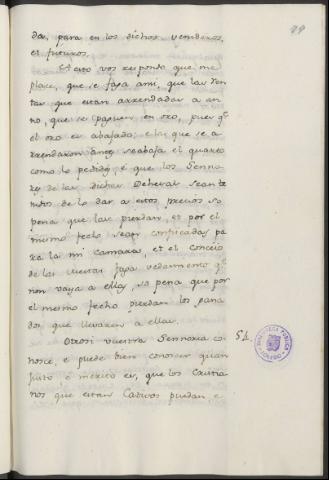 99
das, para en los dichos venideros,
et futuros.
A esto vos respondo que me
place, que se faga ami, que las ren
tas que estan arrendadas a an
no, que se paguen en oro, pues qe
el oro es abajado; e las que se a
rrendaron antes seabaja el quarto
como lo pedides, é que los Senno
res de las dichas Dehesas sean te
nidos de lo dar a estos precios so
pena que las pierdan, et por el
mismo fecho sean confiscadas pa
ra la mi camara, et el concejo
de las vuestas faga vedamiento qe
non vaya a ellas, so pena que por
el mesmo fecho pierdan los gana
dos que llevaren a ellas.
Otrosi vuestra Sennoria co
nosce, e puede bien conoscer quan
justo é mexico es, que los Cautia
nos que estan Cativos puedan, e
51.
BIBLIOTECA PUBLICA
TOLEDO